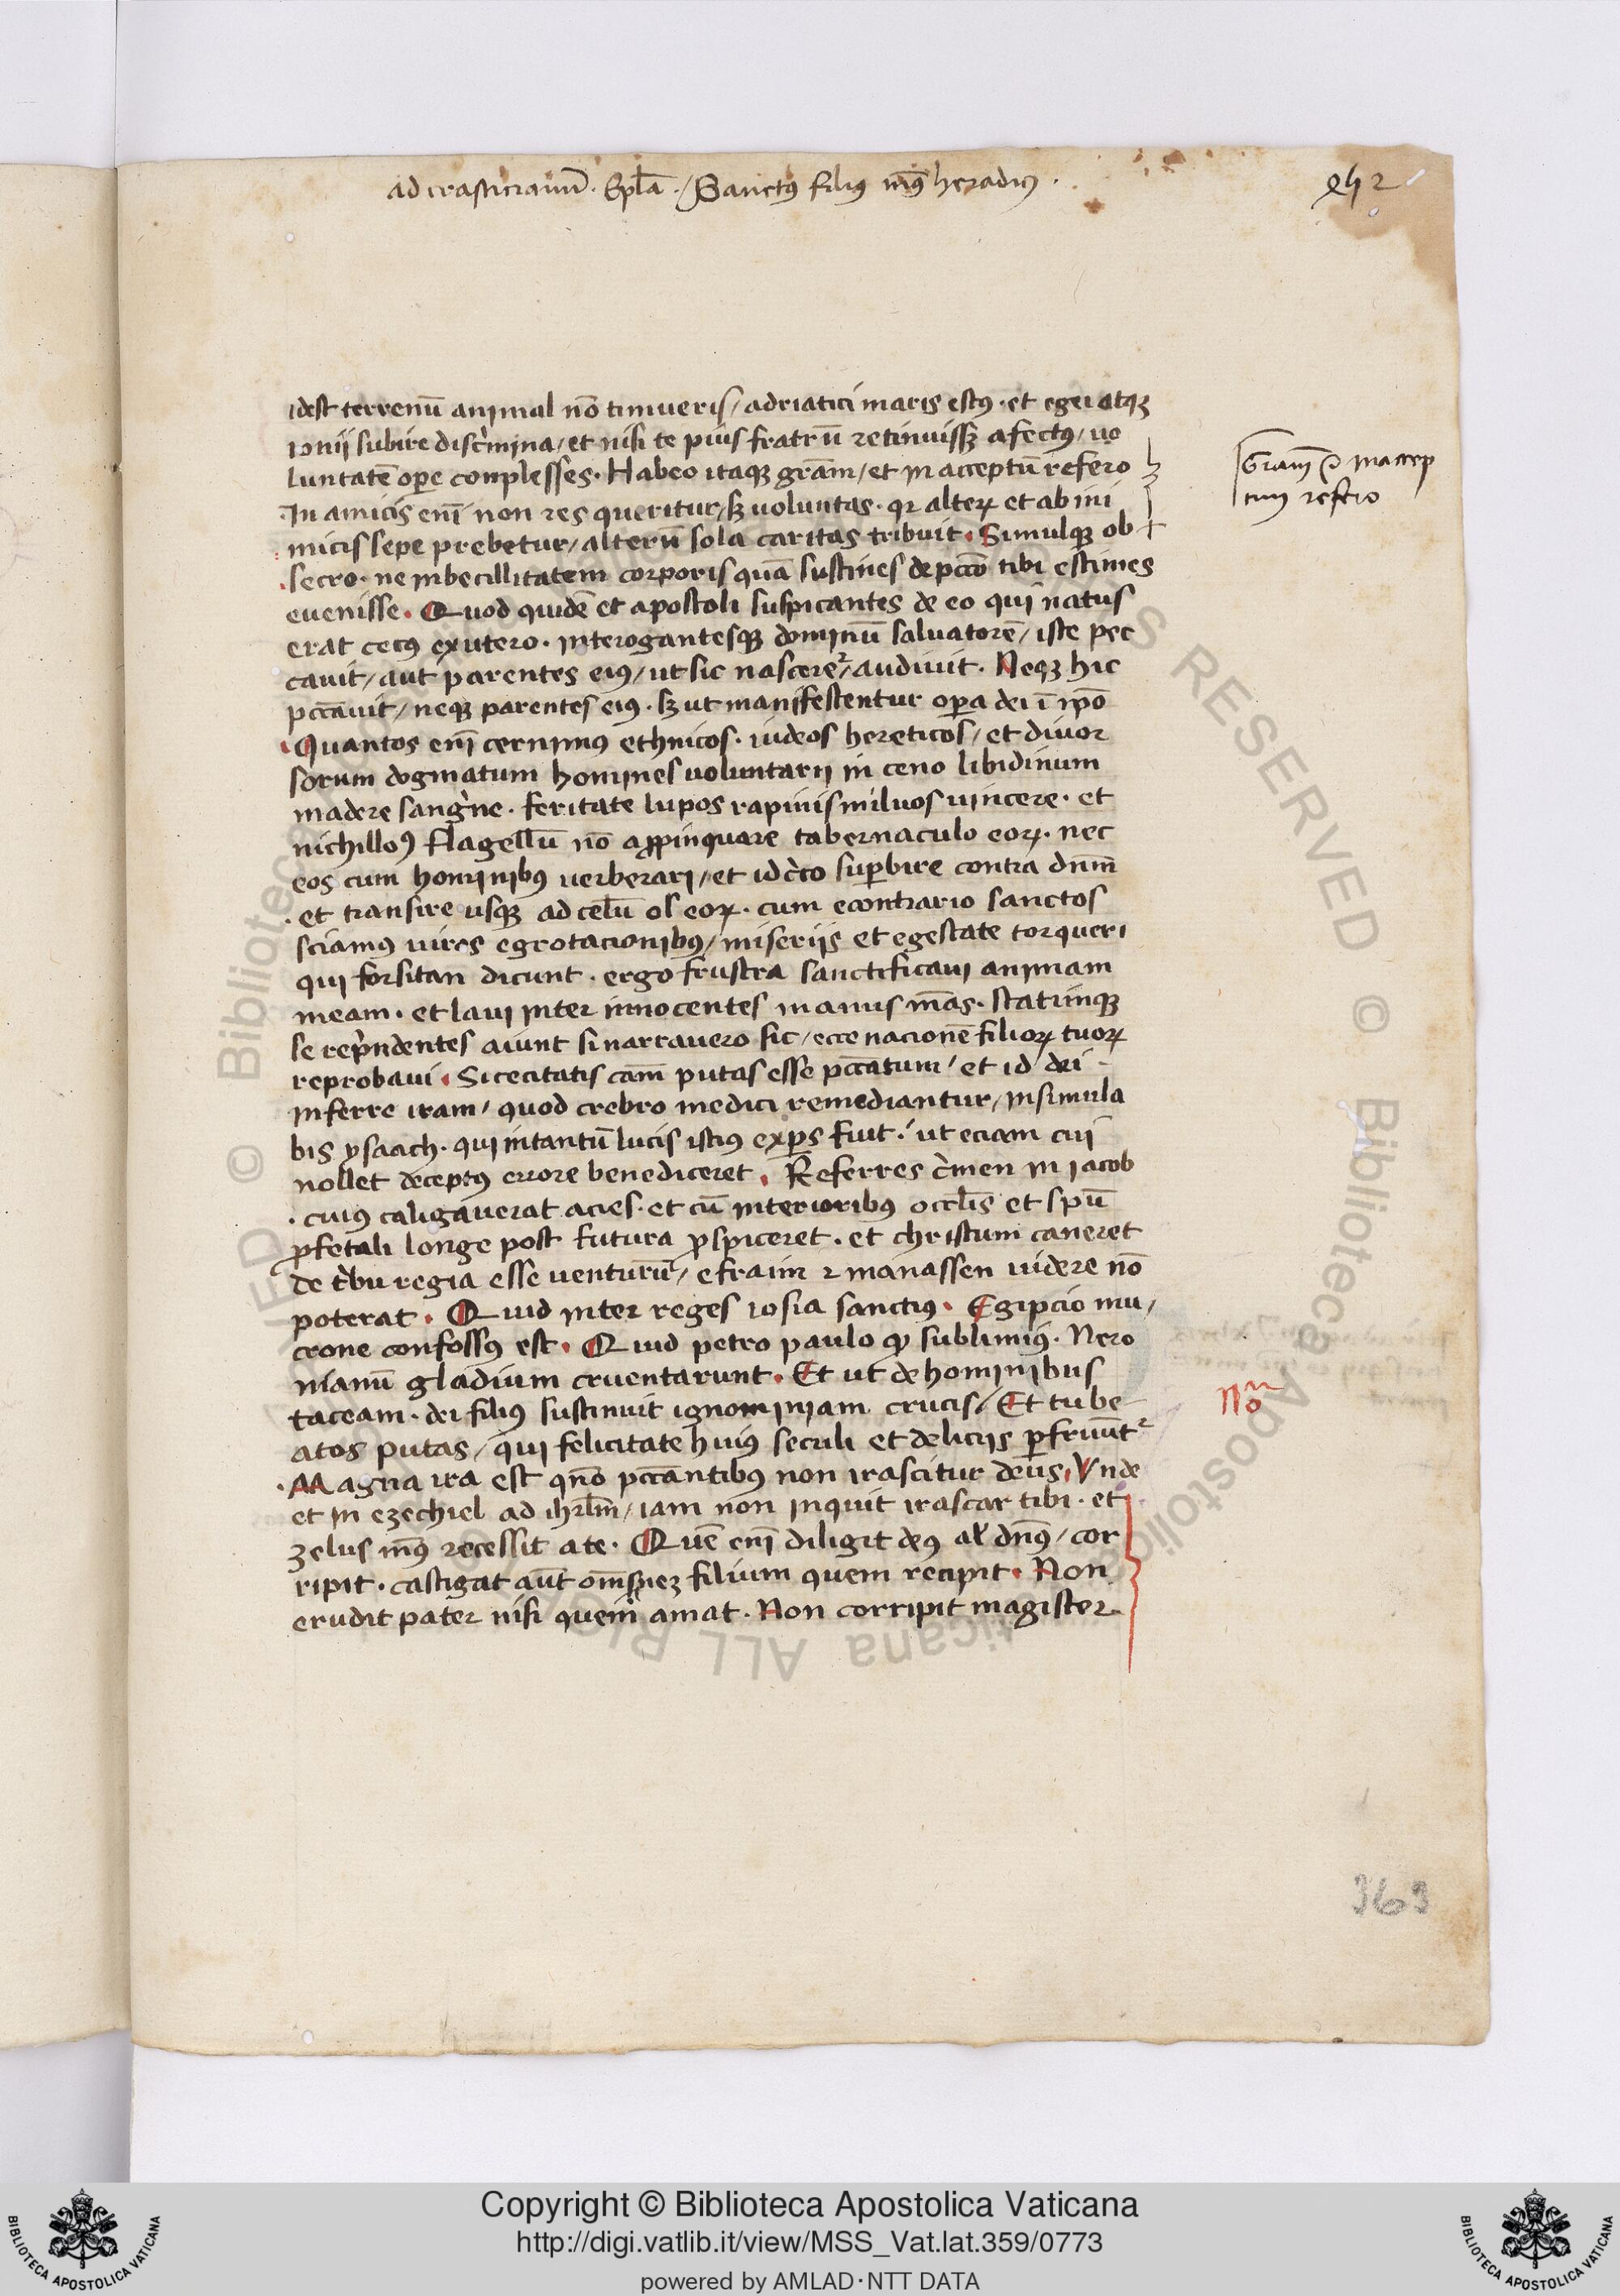 ad crasticianū. Epl̄a. / Sanctꝰ filiꝰ mꝰ heradiꝰ.
idest terrenū animal nō timueris / adriatici maris estꝰ · et egei atqꝫ
ionii subire discrimina / et nisi te pius fratrū retinuissꝫ afectꝰ / uo
luntatē oꝑe conplesses · Habeo itaqꝫ grām / et in acceptū refero
Gram̄ et in accep
tum refero
In amicis enī non res queritur / sꝫ voluntas · qꝛ alteꝝ et ab ini
micis sepe prebetur / alterū sola caritas tribuit · Simulqꝫ ob
secro · ne inbecillitatem corporis quā sustines de pctō tibi estimes
euenisse · Quod quidē et apostoli suspicantes de eo qui natus
erat cecꝰ ex utero · interogantesqꝫ dominū saluatorē / iste pec
cauit / aut parentes eiꝰ / ut sic nasceret᷑ / audiuit · Neqꝫ hic
pccāuit / neqꝫ parentes eiꝰ · sꝫ ut manifestentur oꝑa dei ī ipō
Quantos enī cernimꝰ ethnicos · iudeos hereticos / et diuor
sorum dogmatum homines voluntarii in ceno libidinum
madere sangͥne · feritate lupos rapinis miluos uincere · et
nichilloꝰ flagellū nō aꝓpinquare tabernaculo eoꝝ · nec
eos cum hominibꝰ uerberari / et idcͥco suꝑbire contra dnm̄
et transire usqꝫ ad celū os eoꝝ · cum econtrario sanctos
sciamꝰ uiros egrotacionibꝰ / miseriis et egestate torqueri
qui forsitan dicunt · ergo frustra sanctificaui animam
meam · et laui inter innocentes manus mēas · statimqꝫ
se repͥndentes aiunt si narrauero sic / ecce nacionē filioꝝ tuoꝝ
reprobaui · Si cecitatis cām putas esse pccātum / et id dei
inferre iram / quod crebro medici remediantur / insimula
bis ysaach · qui intantū lucis istiꝰ exꝑs fuit · ut eciam cui
nollet deceptꝰ errore benediceret · Referres cͥmen in iacob
cuiꝰ caligauerat acies · et cū interioribꝰ occl̄is et spū
ꝓfetali longe post futura ꝓspiceret · et christum caneret
de tͥbu regia esse venturū / efraim ⁊ manassen uidere nō
poterat · Quid inter reges iosia sanctiꝰ · Egipcio mu /
crone confossꝰ est · Quid petro paulo qꝫ sublimiꝰ · Nero
nianū gladium cruentarunt · Et ut de hominibus
taceam · dei filiꝰ sustinuit ignominiam crucis / Et tu be
atos putas / qui felicitate huiꝰ seculi et deliciis ꝑfruūt᷑
Magna ira est qn̄o pccāntibꝰ non irascitur deus · Vnde
et in ezechiel ad ihrlm̄ / iam non inquit irascar tibi · et
zelus mꝰ recessit a te · Quē enī diligit deꝰ al' dnꝰ / cor
ripit · castigat aūt om̄s filium quem recipit · Non
erudit pater nisi quem amat · Non corripit magister
363
Copyright © Biblioteca Apostolica Vaticana
http://digi.vatlib.it/view/MSS_Vat.lat.359/0773
powered by AMLAD·NTT DATA
BIBLIOTECA APOSTOLICA VATICANA
BIBLIOTECA APOSTOLICA VATICANA